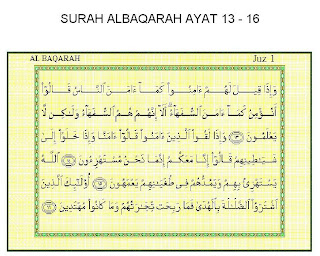 SURAH ALBAQARAH AYAT 13 - 16
AL BAQARAH Juz 1
وَإِذَا قِيلَ لَهُمْ ءَامِنُوا۟ كَمَآ ءَامَنَ ٱلنَّاسُ قَالُوٓا۟
أَنُؤْمِنُ كَمَآ ءَامَنَ ٱلسُّفَهَآءُ ۗ أَلَآ إِنَّهُمْ هُمُ ٱلسُّفَهَآءُ وَلَـٰكِن لَّا
يَعْلَمُونَ ١٣ وَإِذَا لَقُوا۟ ٱلَّذِينَ ءَامَنُوا۟ قَالُوٓا۟ ءَامَنَّا وَإِذَا خَلَوْا۟ إِلَىٰ
شَيَـٰطِينِهِمْ قَالُوٓا۟ إِنَّا مَعَكُمْ إِنَّمَا نَحْنُ مُسْتَهْزِءُونَ ١٤ ٱللَّهُ
يَسْتَهْزِئُ بِهِمْ وَيَمُدُّهُمْ فِى طُغْيَـٰنِهِمْ يَعْمَهُونَ ١٥ أُو۟لَـٰٓئِكَ ٱلَّذِينَ
ٱشْتَرَوُا۟ ٱلضَّلَـٰلَةَ بِٱلْهُدَىٰ فَمَا رَبِحَت تِّجَـٰرَتُهُمْ وَمَا كَانُوا۟ مُهْتَدِينَ ١٦